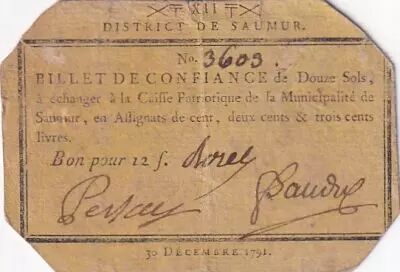 XII
DISTRICT DE SAUMUR.
No. 3603.
BILLET DE CONFIANCE de Douze Sols,
à échanger à la Caisse Patriotique de la Municipalité de
Saumur, en Assignats de cent, deux cents & trois cents
livres.
Bon pour 12 s.
30 DÉCEMBRE 1791.